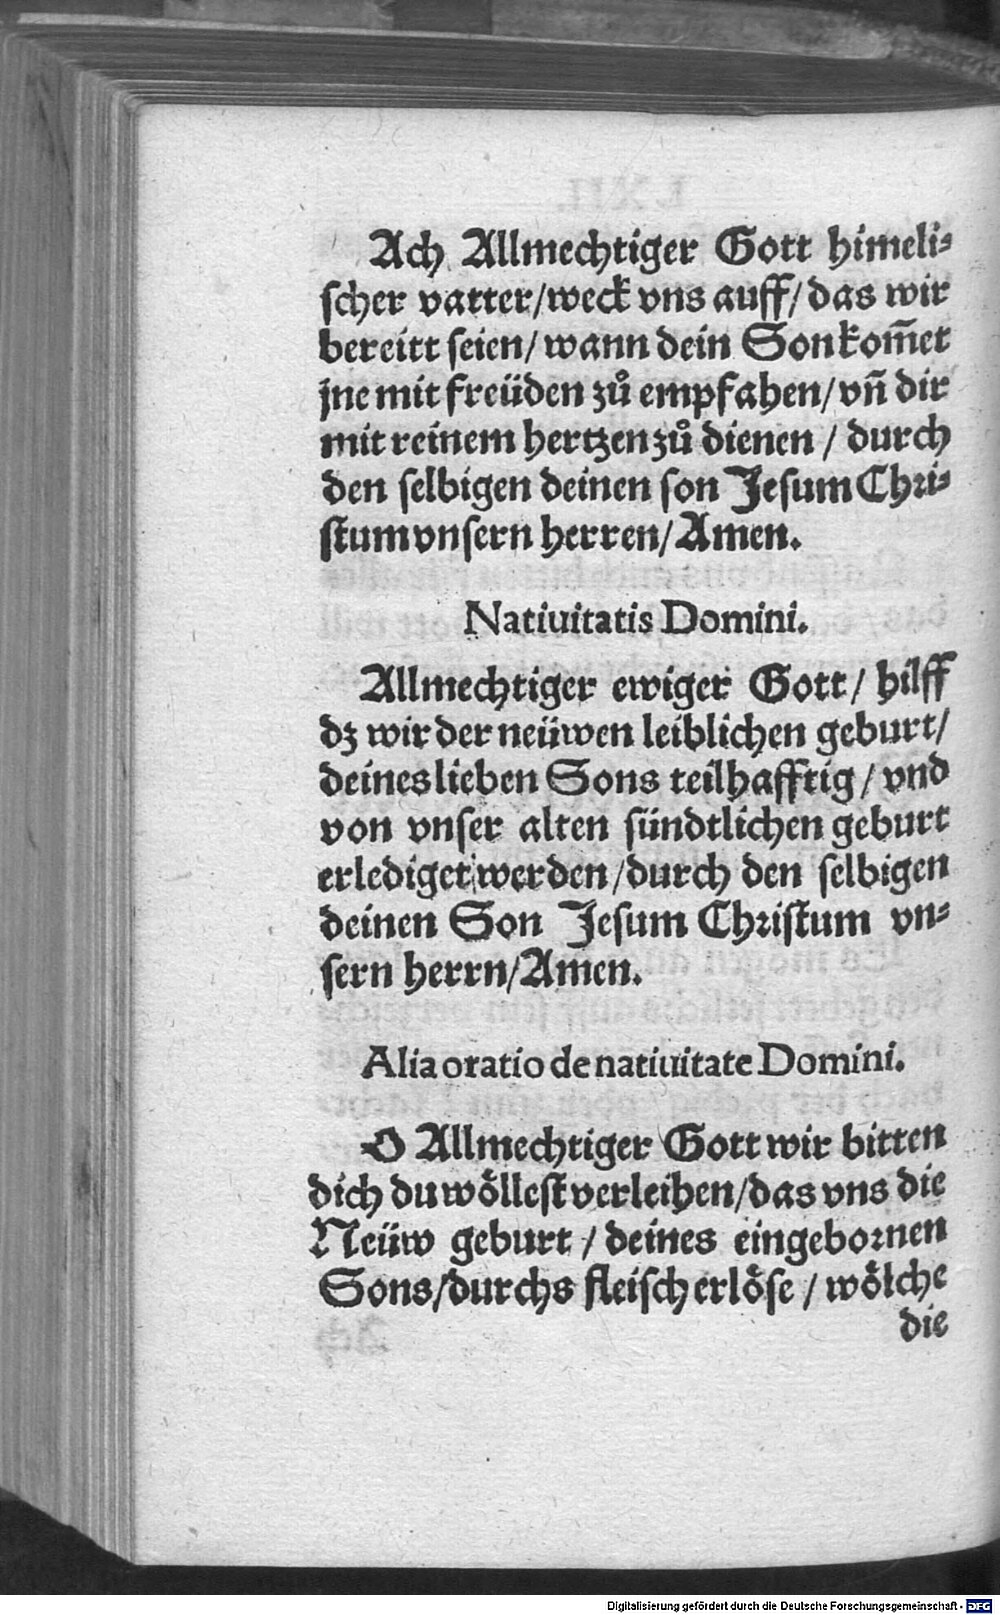 Ach Allmechtiger Gott himeli⸗
scher vatter/weck vns auff/das wir
bereitt seien/wann dein Son kom̅et
jne mit freüden zů empfahen/vn̅ dir
mit reinem hertzen zů dienen / durch
den selbigen deinen son Jesum Chri⸗
stum vnsern herren/Amen.
Natiuitatis Domini.
Allmechtiger ewiger Gott/ hilff
dz wir der neüwen leiblichen geburt/
deines lieben Sons teilhafftig/vnd
von vnser alten sündtlichen geburt
erlediget werden/durch den selbigen
deinen Son Jesum Christum vn⸗
sern herrn/Amen.
Alia oratio de natiuitate Domini.
O Allmechtiger Gott wir bitten
dich du wöllest verleihen/das vns die
Neüw geburt / deines eingebornen
Sons/durchs fleisch erlöse / wölche
die
Digitalisierung gefördert durch die Deutsche Forschungsgemeinschaft - DFG